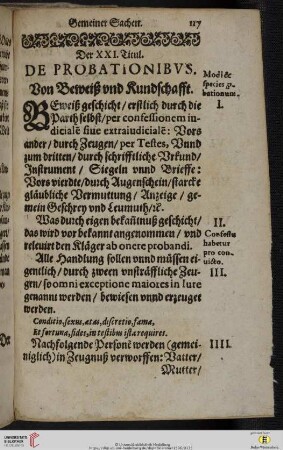 Gemeiner Sachen. 117
Der XXI. Titul.
DE PROBATIONIBVS.
Von Beweiß vnd Kundschafft.
Modi &
species p̱-
bationum.
I.
BEweiß geschicht / erstlich durch die
Parth selbst / per confessionem in-
dicialē siue extraiudicialē: Vors
ander / durch Zeugen / per Testes, Vnnd
zum dritten / durch schrifftliche Vrkund /
Instrument / Siegeln vnnd Brieffe:
Vors vierdte / durch Augenschein / starcke
gläubliche Vermuttung / Anzeige / ge-
mein Geschrey vnd Leumuth / ꝛc.
Was durch eigen bekañtnuß geschicht /
das wird vor bekannt angenommen / vnd
releuirt den Kläger ab onere probandi.
II.
Confessus
habetur
pro con-
uicto.
Alle Handlung sollen vnnd müssen ei-
gentlich / durch zween vnsträffliche Zeu-
gen / so omni exceptione maiores in Iure
genannt werden / bewiesen vnnd erzeuget
werden.
III.
Conditio, sexus, ætas, discretio, fama,
Et fortuna, fides, in testibus ista requires.
Nachfolgende Personē werden (gemei-
niglich) in Zeugnuß verworffen: Vatter /
IIII.
Mutter /